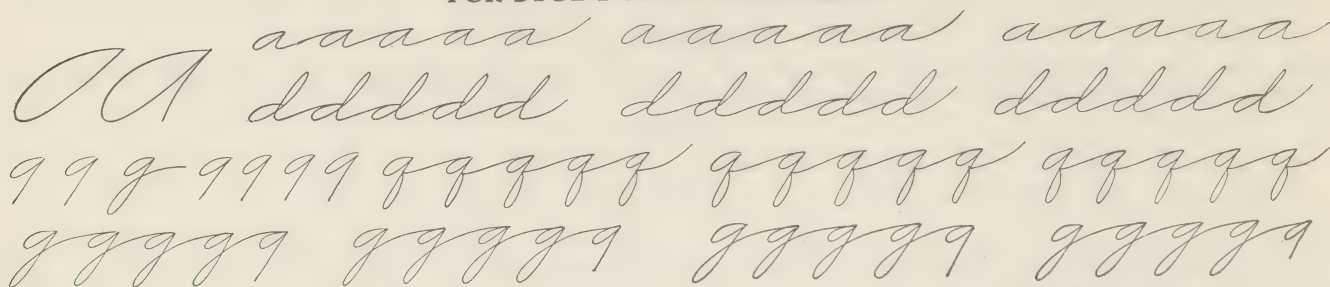 aaaaa aaaaa aaaaa
ddddd ddddd ddddd
9 9 g 9 9 9 9 qqqqq qqqqq qqqqq
ggggg ggggg ggggg ggggg